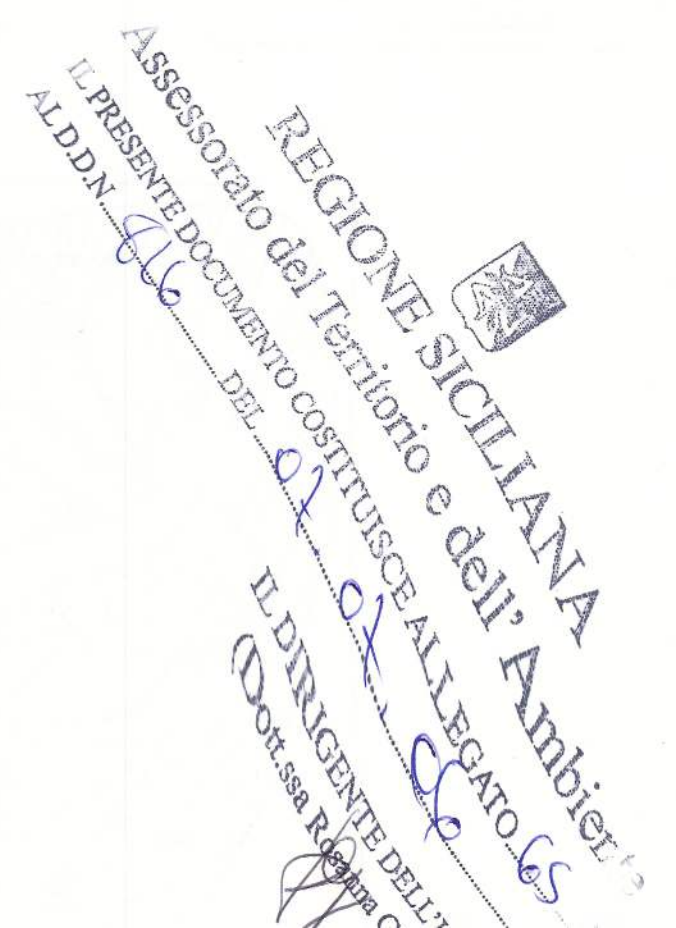 REGIONE SICILIANA
Assessorato del Territorio e dell' Ambiente
IL PRESENTE DOCUMENTO COSTITUISCE ALLEGATO 65
AL D.D.N. 816 DEL 07.07.06
IL DIRIGENTE DELL'
(Dott.ssa Rosanna